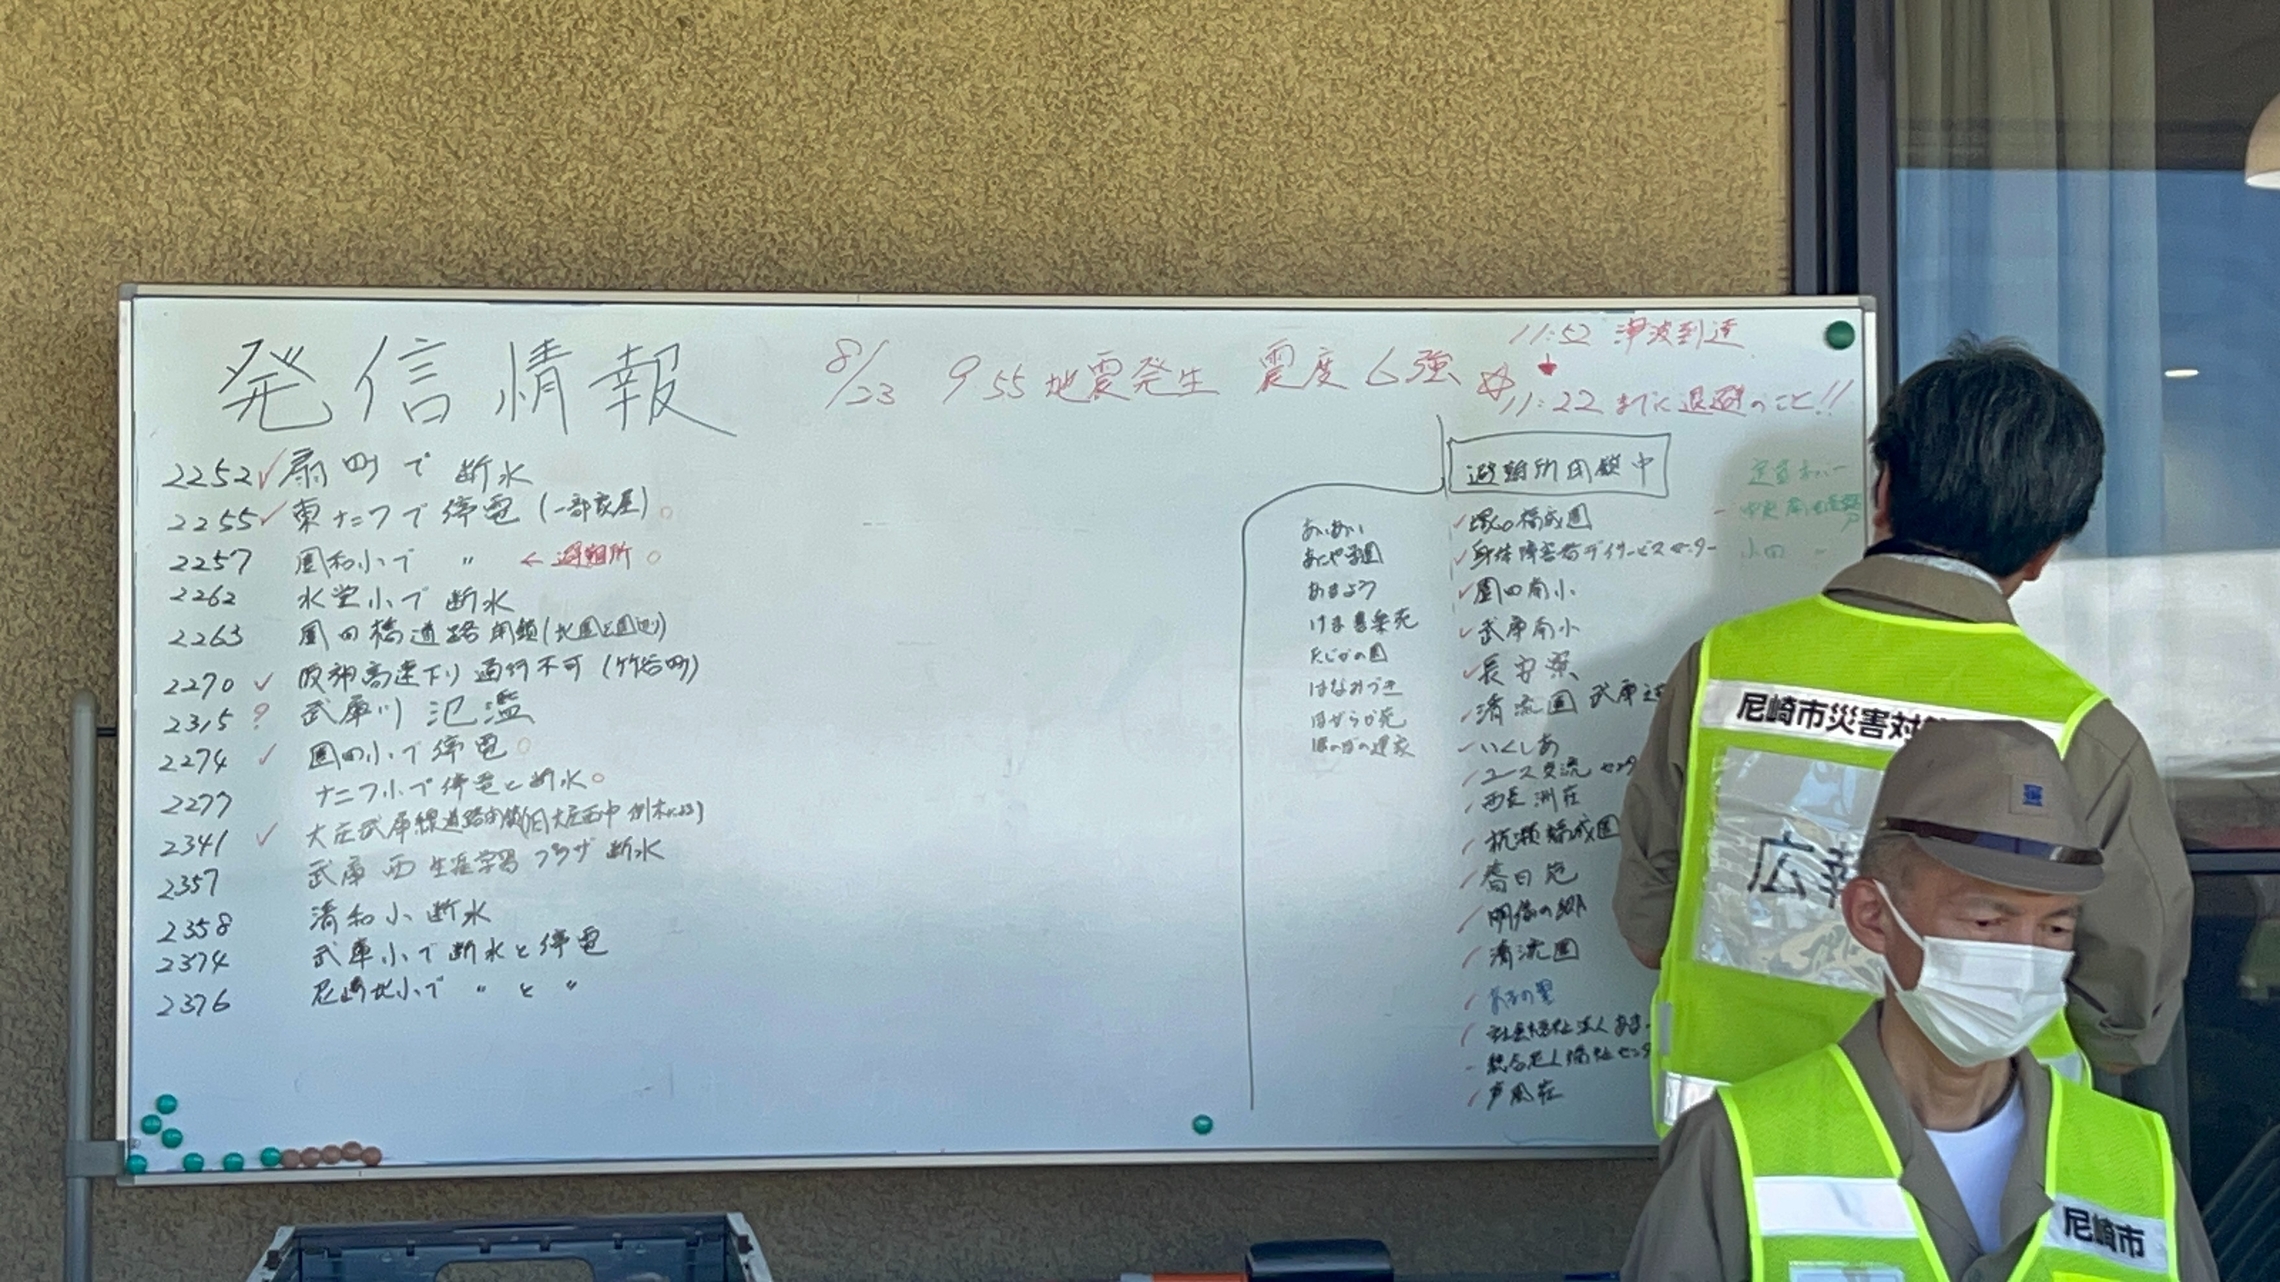 発信情報
8/23 9:55 地震発生 震度6強
11:52 津波到達
11:22 までに退避のこと!!
2252 ✓ 扇町で 断水
2255 ✓ 東ナニワで 停電 (一部家屋) ○
2257 園和小で 〃 ← 避難所 ○
2262 水堂小で 断水
2263 園田橋道路閉鎖
2270 ✓ 阪神高速下り 通行不可 (竹谷町)
2315 ? 武庫川 氾濫
2274 ✓ 園田小で 停電 ○
2277 ナニワ小で 停電と断水 ○
2341 ✓ 大庄武庫線道路閉鎖(旧大庄西中 倒木による)
2357 武庫西生涯学習プラザ 断水
2358 清和小 断水
2374 武庫小で 断水と停電
2376 尼崎北小で 〃 と 〃
あいあい
あまの里
けま喜楽苑
はなみづき
避難所開鎖中
✓ 塚口福成園
✓ 身体障害者デイサービスセンター
✓ 園田南小
✓ 武庫南小
✓ 長安寮
✓ 清流園 武庫
いくしあ
ユース交流センタ
西長洲荘
杭瀬福成園
春日苑
清流園
社会福祉法人 あま
総合老人福祉センタ
定員オーバー
小田 〃
尼崎市災害対
広報
尼崎市